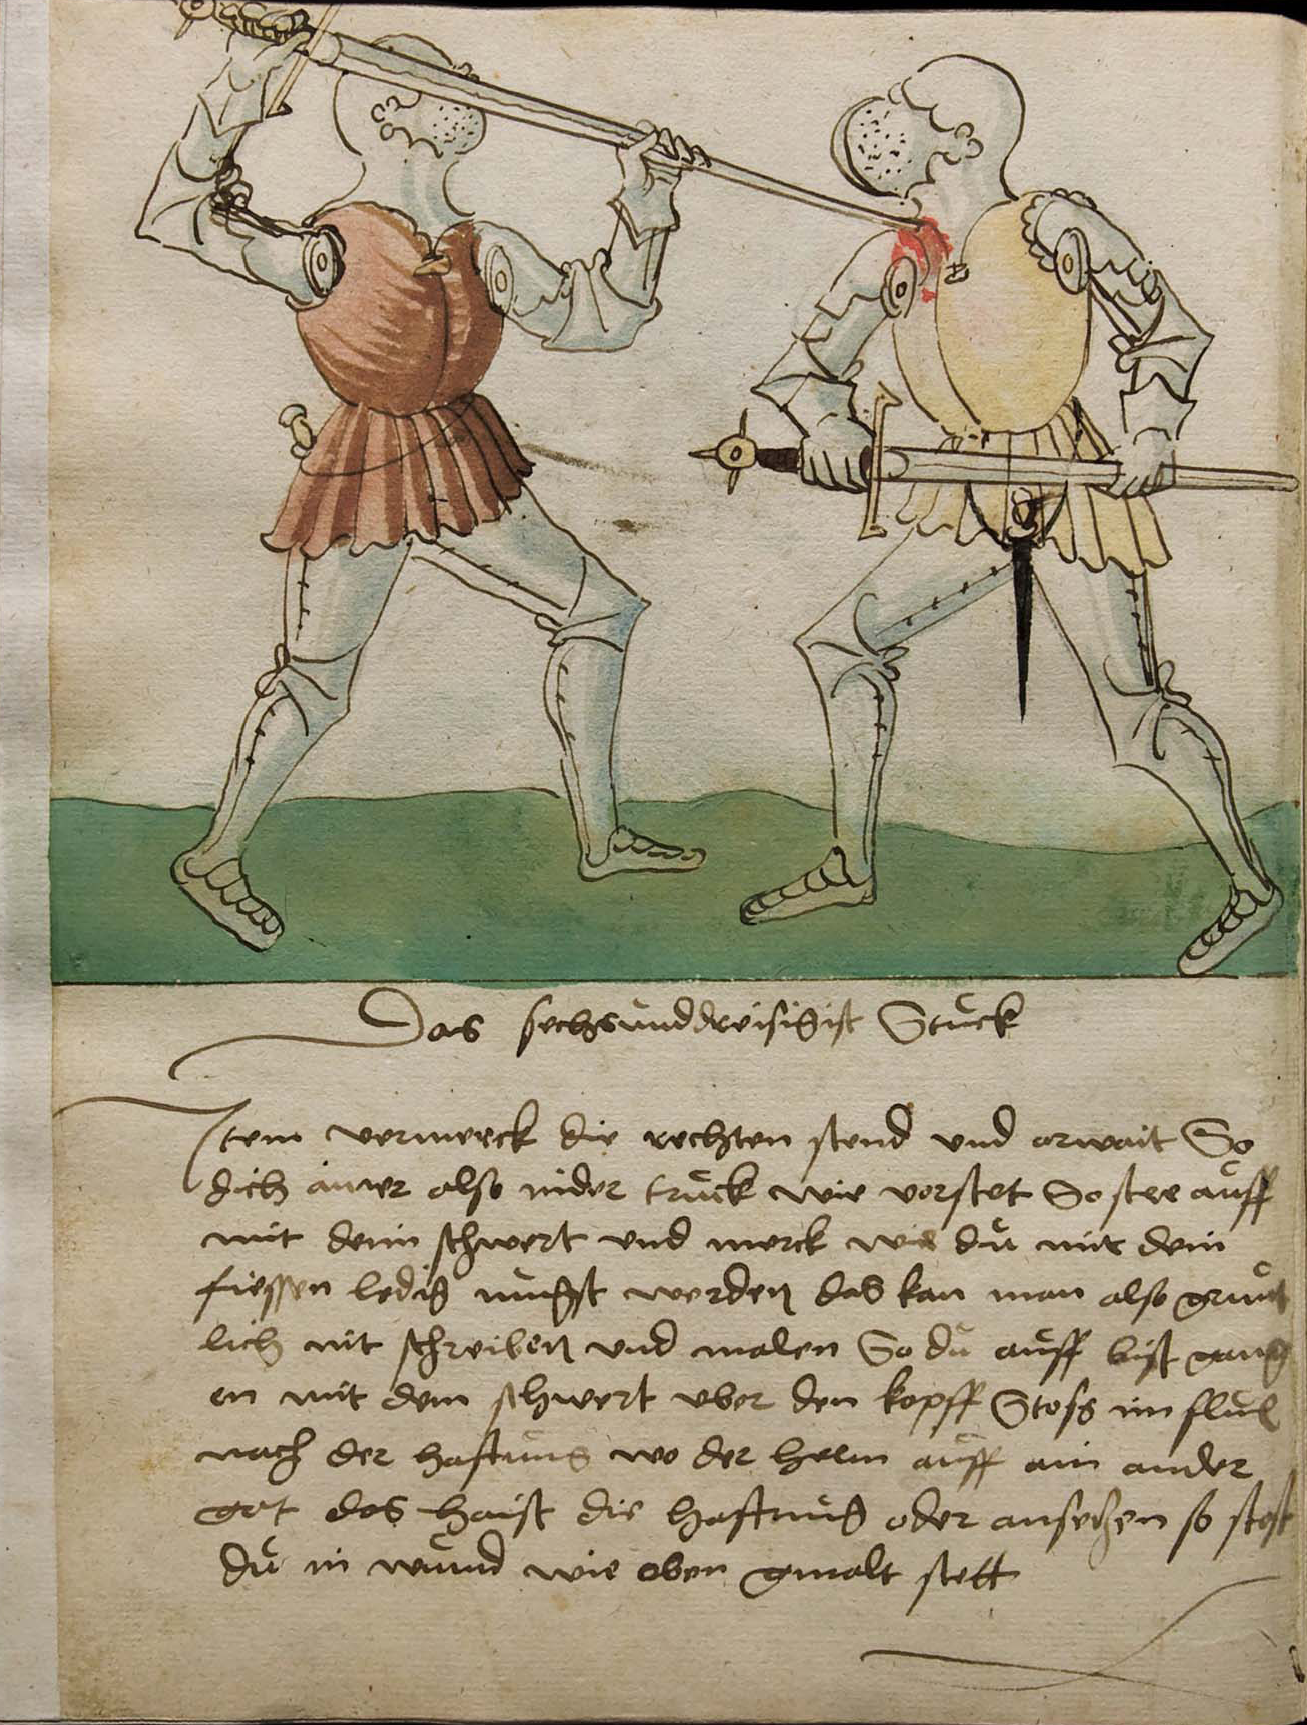 Das sechsunddreisigist Stuck
Item vermerck die rechten stend und arwait So
dich ainer also nider truck wie vorstet So stee auff
mit dem schwert und merck wie du mit dein
fiessen ledig mugst werden das kan man also grunt
lich nit schreiben und malen So du auff bist gang
en mit dem schwert uber den kopff Stoss im
nach der haftung wo der helm auff ain ander
gat das haist die haftung oder ansechen so stost
du in wund wie oben gmalt stett